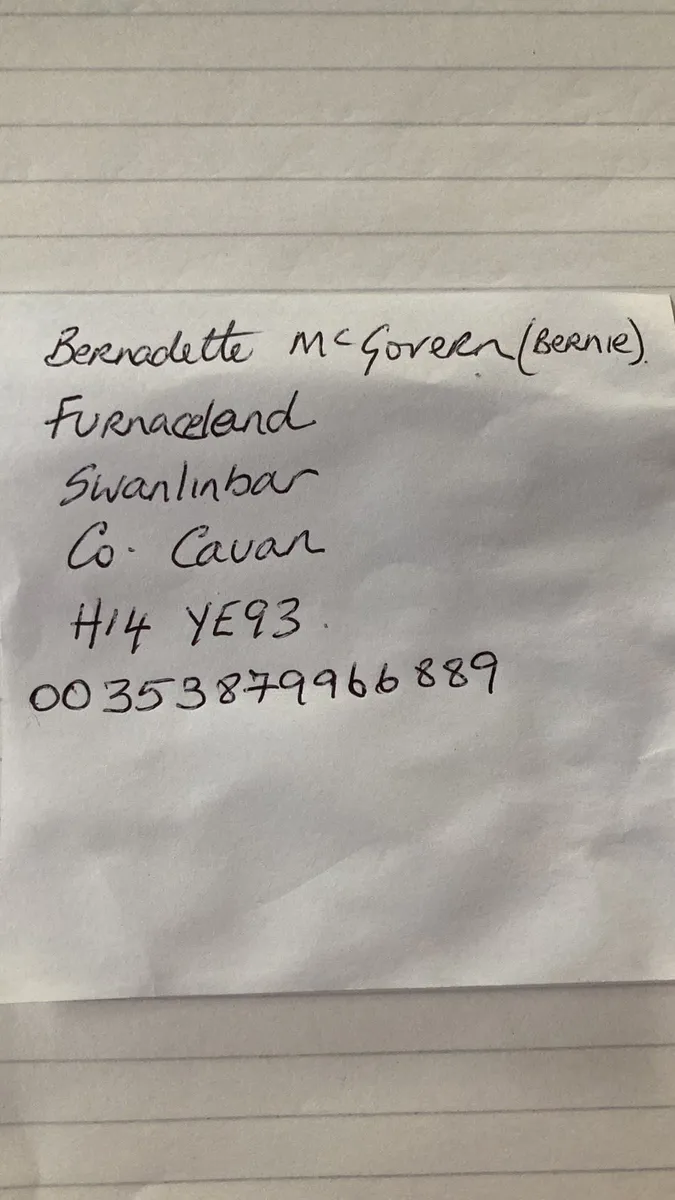 Bernadette McGovern (Bernie).
Furnaceland
Swanlinbar
Co. Cavan
H14 YE93.
00353879966889